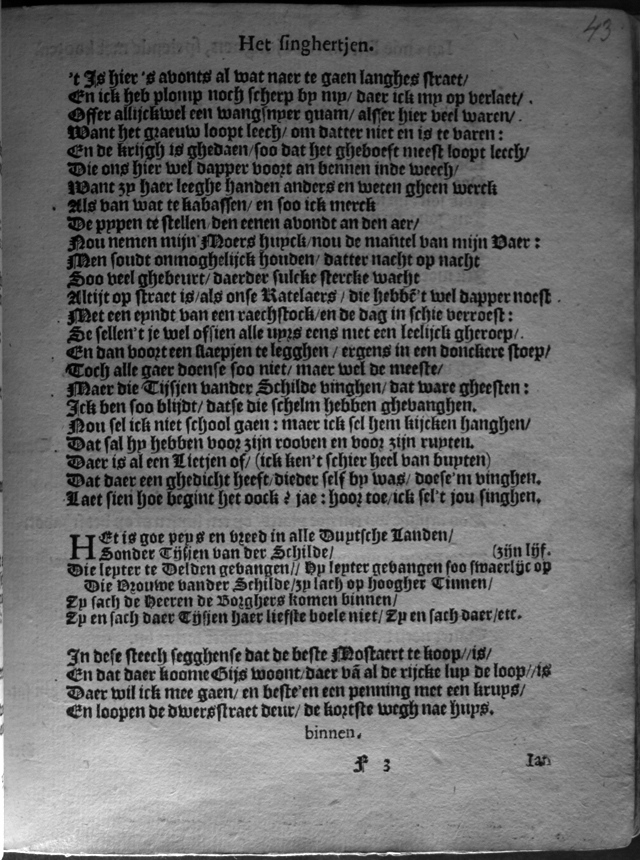 43
Het singhertjen.
't Is hier 's avonts al wat naer te gaen langhes straet/
En ick heb plomp noch scherp by my/ daer ick my op verlaet/
Offer allijckwel een wangsnyer quam/ alsser hier veel waren/
Want het graeuw loopt leech/ om datter niet en is te varen:
En de krijgh is ghedaen/ soo dat het gheboeft meest loopt leech/
Die ons hier wel dapper voort an bennen inde weech/
Want zy haer leeghe handen anders en weten gheen werck
Als van wat te kabassen/ en soo ick merck
De pypen te stellen/ den eenen avondt an den aer/
Nou nemen mijn Moers huyck/ nou de mantel van mijn Vaer:
Men soudt onmoghelijck houden/ datter nacht op nacht
Soo veel ghebeurt/ daerder sulcke stercke wacht
Altijt op straet is/ als onse Ratelaers/ die hebbē't wel dapper noest
Met een eyndt van een raechstock/ en de dag in schie verroest:
Se sellen't je wel ofsien alle uyrs eens met een leelijck gheroep/
En dan voort een slaepjen te legghen/ ergens in een donckere stoep/
Toch alle gaer doense soo niet/ maer wel de meeste/
Maer die Tijsjen vander Schilde vinghen/ dat ware gheesten:
Ick ben soo blijdt/ datse die schelm hebben ghevanghen.
Nou sel ick niet school gaen: maer ick sel hem kijcken hanghen/
Dat sal hy hebben voor zijn rooven en voor zijn ruyten.
Daer is al een Lietjen of/ (ick ken't schier heel van buyten)
Dat daer een ghedicht heeft/ dieder self by was/ doese'm vinghen.
Laet sien hoe begint het oock? jae: hoor toe/ ick sel't jou singhen.
HEt is goe peys en vreed in alle Duytsche Landen/
Sonder Tijsjen van der Schilde/ (zijn lijf.
Die leyter te Delden gevangen// Hy leyter gevangen soo swaerlijc op
Die Vrouwe vander Schilde/ zy lach op hoogher Tinnen/
Zy sach de Heeren de Borghers komen binnen/
Zy en sach daer Tijsjen haer liefste boele niet/ Zy en sach daer/ etc.
In dese steech segghense dat de beste Mostaert te koop//is/
En dat daer koome Gijs woont/ daer vā al de rijcke luy de loop//is
Daer wil ick mee gaen/ en beste'en een penning met een kruys/
En loopen de dwersstraet deur/ de kortste wegh nae huys.
binnen.
F 3 Ian